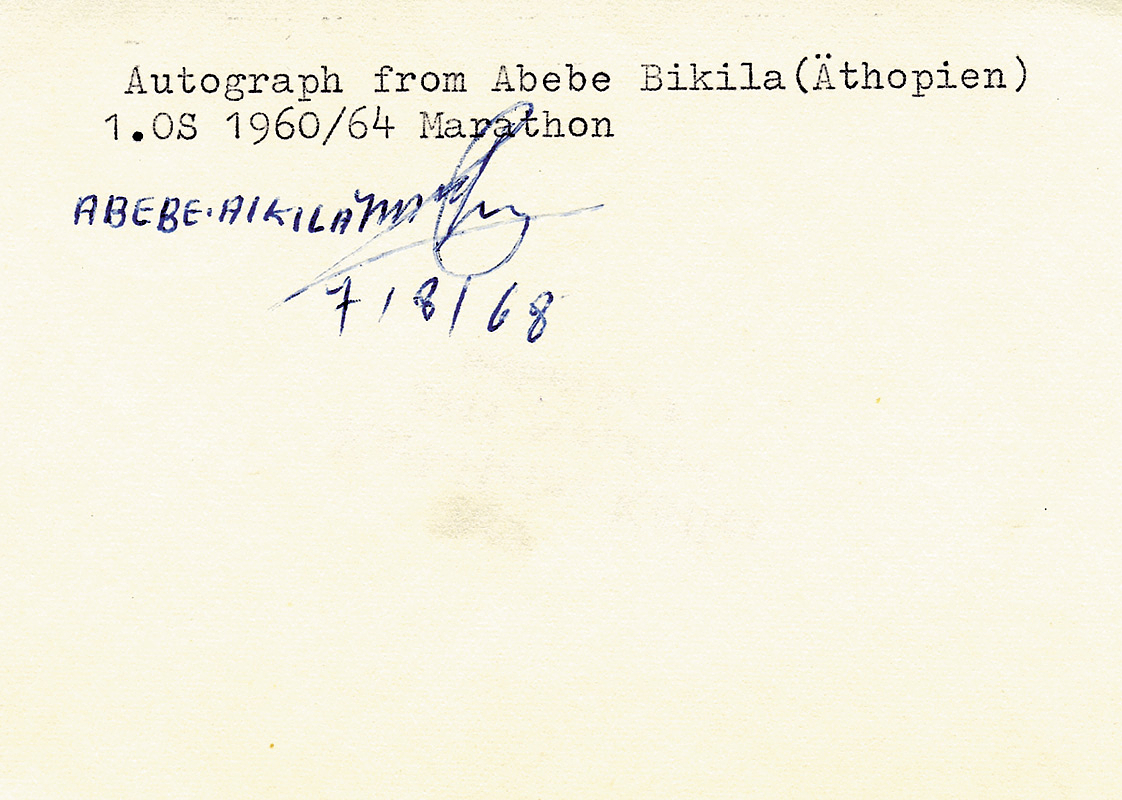 Autograph from Abebe Bikila(Äthopien)
1.OS 1960/64 Marathon
ABEBE.AIKILA
7/8/68